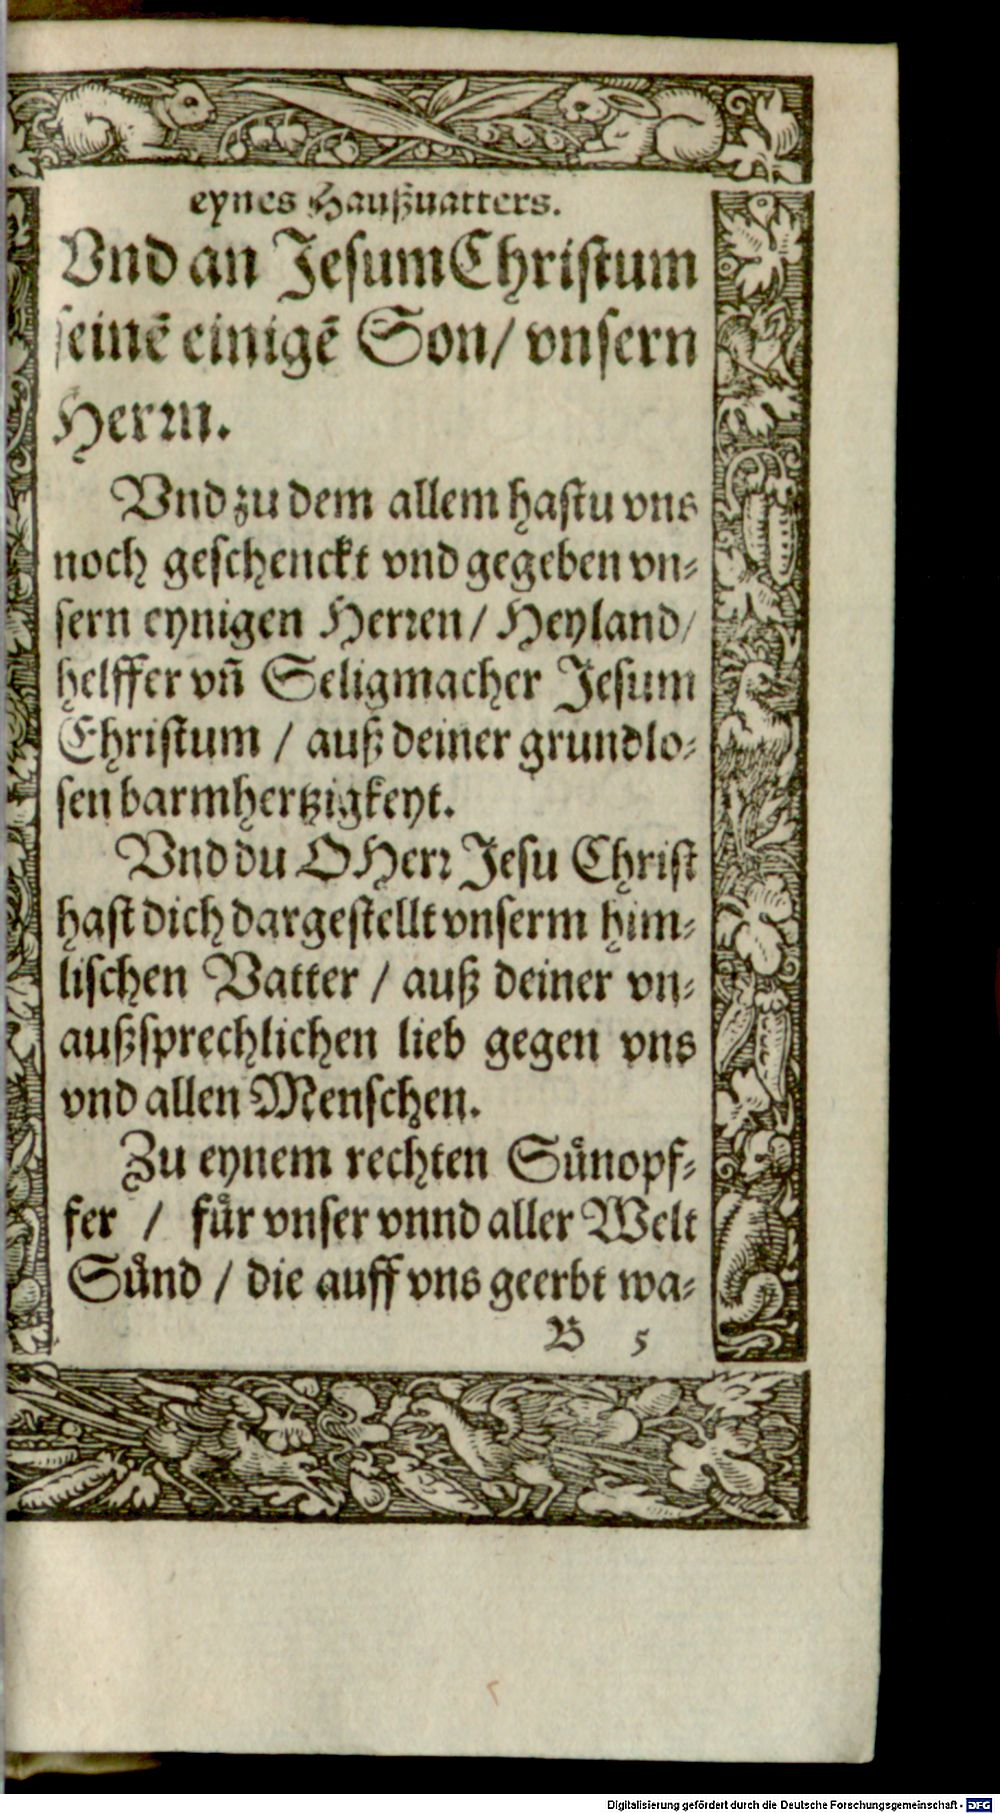 eynes Haußuatters.
Vnd an Jesum Christum
seinē einigē Son/ vnsern
Herrn.
Vnd zu dem allem hastu vns
noch geschenckt vnd gegeben vn-
sern eynigen Herren/ Heyland/
helffer vñ Seligmacher Jesum
Christum / auß deiner grundlo-
sen barmhertzigkeyt.
Vnd du O Herr Jesu Christ
hast dich dargestellt vnserm him-
lischen Vatter / auß deiner vn-
außsprechlichen lieb gegen vns
vnd allen Menschen.
Zu eynem rechten Suͤnopf-
fer / fuͤr vnser vnnd aller Welt
Suͤnd / die auff vns geerbt wa-
B 5
Digitalisierung gefördert durch die Deutsche Forschungsgemeinschaft - DFG